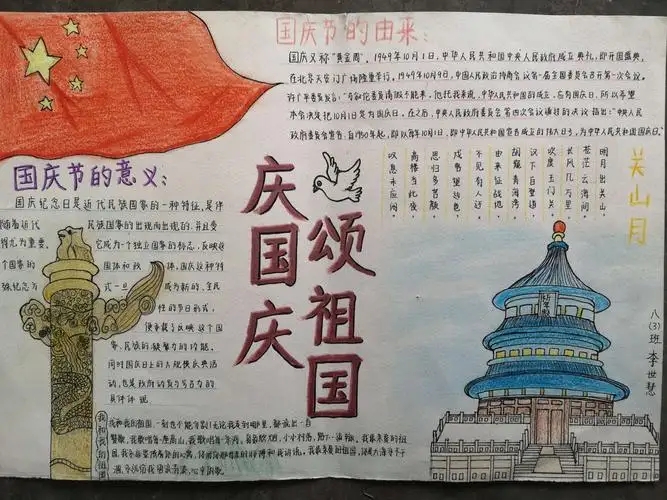 国庆节的由来:
国庆又称"黄金周"。1949年10月1日,中华人民共和国中央人民政府成立典礼,即开国盛典,
在北京天安门广场隆重举行。1949年10月9日,中国人民政治协商会议第一届全国委员会召开第一次会议。
许广平委员发言:"马叙伦委员请假不能来,他托我来说,中华人民共和国的成立,应有国庆日,所以希望
本会决定把10月1日定为国庆日。在之后,中央人民政府委员会第四次会议通过的决议指出:"中央人民
政府委员会宣告:自1950年起,即以每年10月1日,即中华人民共和国宣告成立的伟大日子,为中华人民共和国国庆日。"
关山月
明月出天山
苍茫云海间
长风几万里
吹度玉门关
汉下白登道
胡窥青海湾
由来征战地
不见有人还
戍客望边色
思归多苦颜
高楼当此夜
叹息未应闲
庆国庆
颂祖国
国庆节的意义:
国庆纪念日是近代民族国家的一种特征,是伴
随着近代 民族国家的出现而出现的,并且变
得尤为重要。 它成为一个独立国家的标志,反映这
个国家的 国体和政 体,国庆这种特
殊纪念方 式一旦 成为新的、全民
性的节日形式,
便承载了反映这个国
家、民族的凝聚力的功能。
同时国庆日上的大规模庆典活
动,也是政府动员与号召力的
具体体现
我和我的祖国
我和我的祖国,一刻也不能分割!无论我走到哪里,都流出一首
赞歌,我歌唱每一座高山,我歌唱每一条河,袅袅炊烟,小小村落,路上一道辙。我最亲爱的祖
祈年殿
八(3)班 李世慧